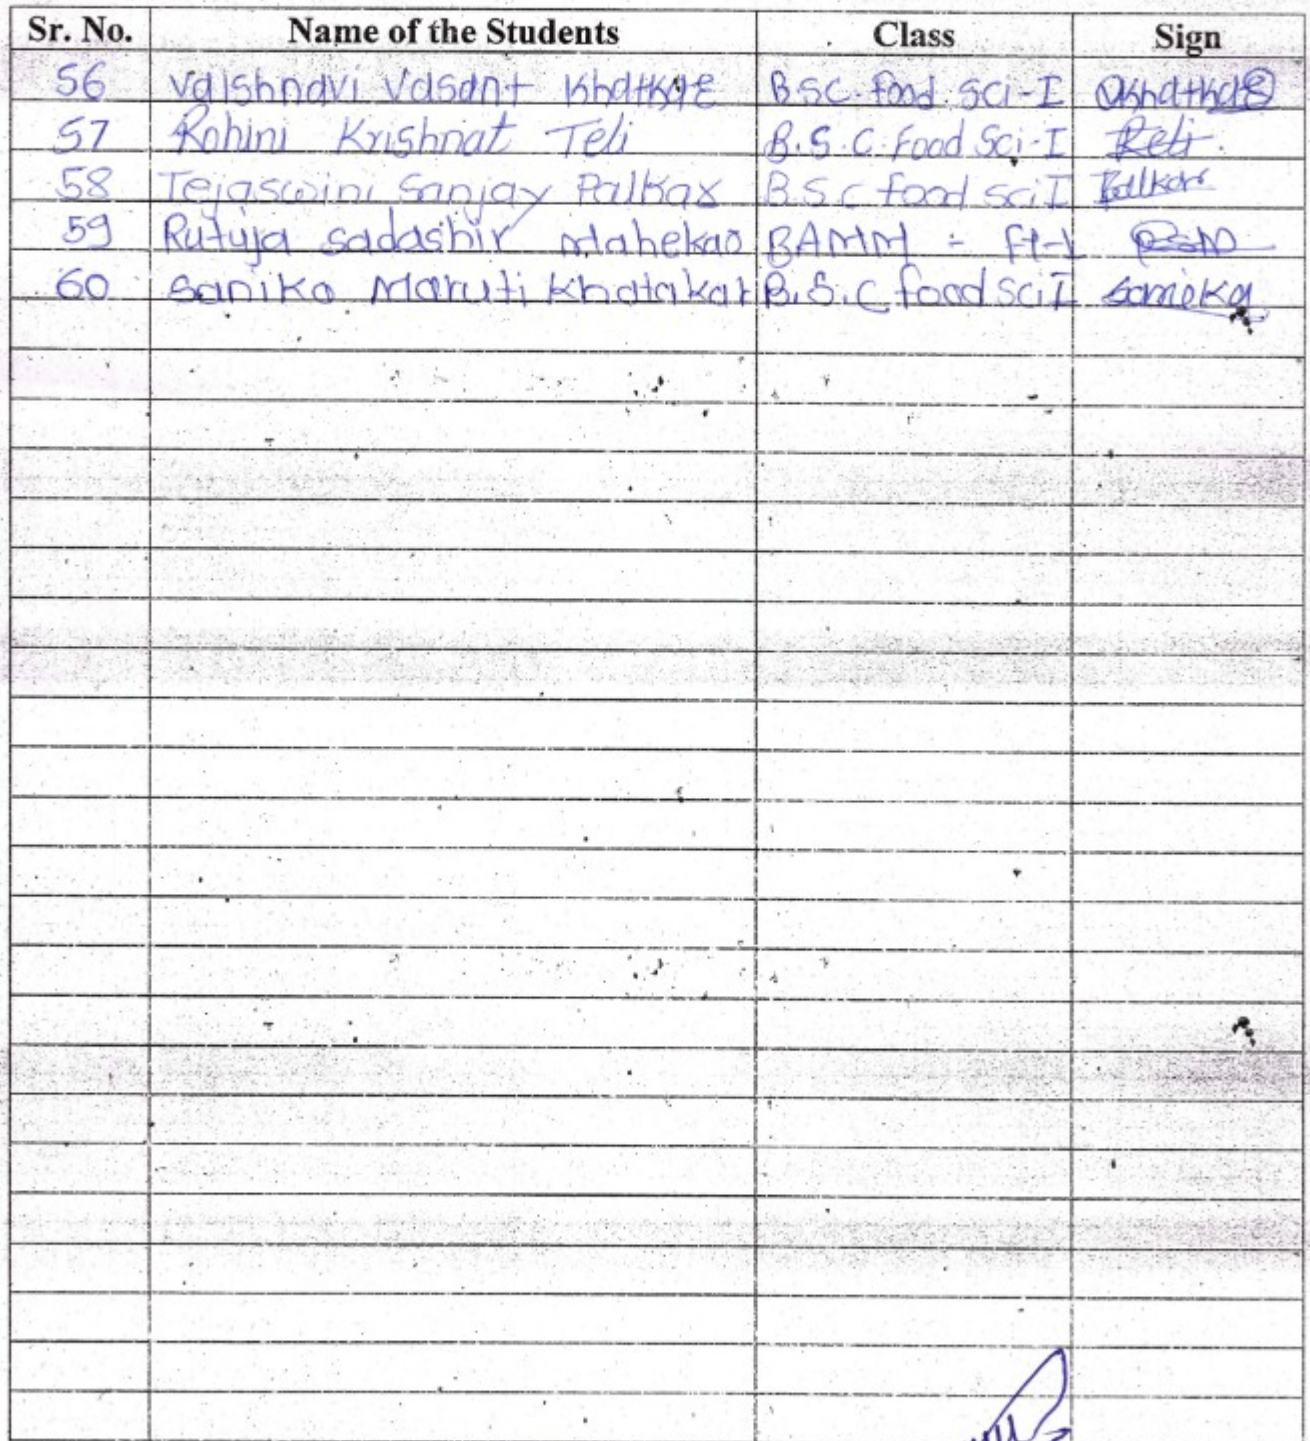 Sr. No. Name of the Students Class Sign
56 Vaishnavi Vasant Khatkar BSC. food. Sci-I Khatkar
57 Rohini Krishnat Teli B.S.C. Food Sci-I Reli
58 Tejaswini Sanjay Palkar B.S.C food sci I Palkar
59 Rutuja Sadashiv Mahekar BAMM -
60 Sanika Maruti Khatakar B.S.C food Sci I Sanika